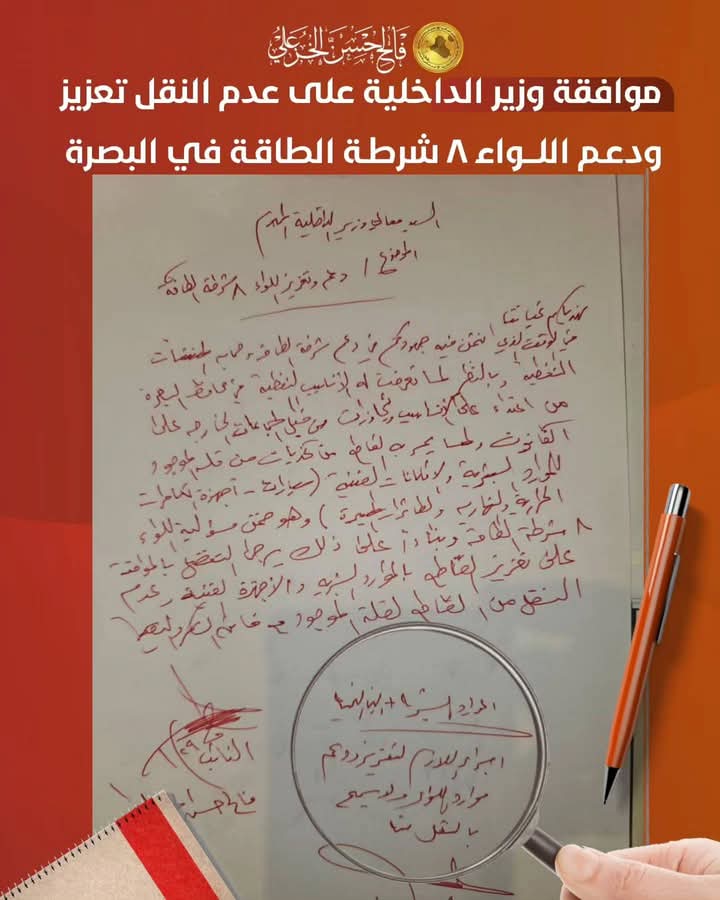 فالح حسن الخزعلي
موافقة وزير الداخلية على عدم النقل تعزيز
ودعم اللـواء ٨ شرطـة الطاقـة في البصرة
السيد معالي وزير الداخلية المحترم
الموضوع / دعم وتعزيز اللواء ٨ شرطة الطاقة
نهديكم تحياتنا
في الوقت الذي نثمن فيه جهودكم في دعم شرطة الطاقة وحماية المنشآت
النفطية وبالنظر لما تعرضت له الأنابيب النفطية في محافظة البصرة
من اعتداء على الأنابيب وتجاوزات من قبل الجماعات الخارجه على
القانون ولما يمر به القاطع من تحديات من قلة الموجود
للموارد البشرية والامكانات الفنية (سيارات - أجهزة الكامرات
الحرارية والنهارية والطائرات المسيرة) وهو ضمن مسؤولية اللواء
٨ شرطة الطاقة وبناءاً على ذلك يرجى التفضل بالموافقة
على تعزيز القاطع بالموارد البشرية والأجهزة الفنية وعدم
النقل من القاطع لقلة الموجود مع فائق الشكر والتقدير
النائب
فالح حسن
الموارد البشرية +
اجراء اللازم لتعزيز ودعم
موارد اللواء ولا يسمح
بالنقل منها